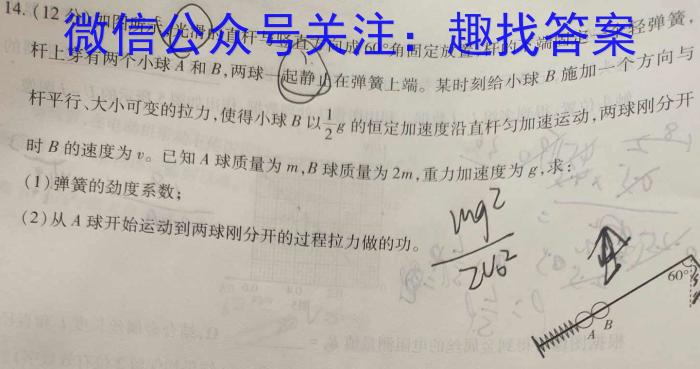 14.(12分)如图所示,光滑的直杆与竖直方向成60°角固定放置,杆的下端 轻弹簧,
微信公众号关注：趣找答案
杆上穿有两个小球A和B,两球一起静止在弹簧上端。某时刻给小球B施加一个方向与
杆平行、大小可变的拉力,使得小球B以1/2 g的恒定加速度沿直杆匀加速运动,两球刚分开
时B的速度为v。已知A球质量为m,B球质量为2m,重力加速度为g,求:
(1)弹簧的劲度系数;
(2)从A球开始运动到两球刚分开的过程拉力做的功。
mg²
60°
A
B